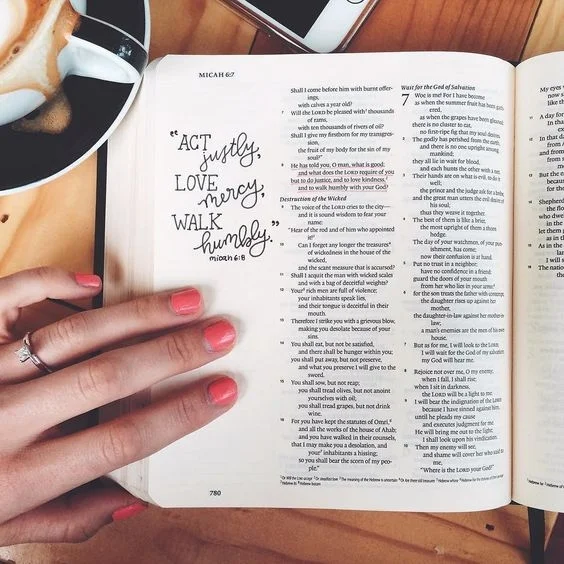 MICAH 6:7
"ACT
justly,
LOVE
mercy,
WALK
humbly."
micah 6:8
Shall I come before him with burnt offer-
ings,
with calves a year old?
7 Will the LORD be pleased with thousands
of rams,
with ten thousands of rivers of oil?
Shall I give my firstborn for my transgres-
sion,
the fruit of my body for the sin of
my soul?"
8 He has told you, O man, what is good;
and what does the LORD require of you
but to do justice, and to love kindness,
and to walk humbly with your God?
Destruction of the Wicked
9 The voice of the LORD cries to the city—
and it is sound wisdom to fear your
name:
"Hear of the rod and of him who appointed
it!
10 Can I forget any longer the treasures
of wickedness in the house of the
wicked,
and the scant measure that is accursed?
11 Shall I acquit the man with wicked scales
and with a bag of deceitful weights?
12 Your rich men are full of violence;
your inhabitants speak lies,
and their tongue is deceitful in their
mouth.
13 Therefore I strike you with a grievous blow,
making you desolate because of your
sins.
14 You shall eat, but not be satisfied,
and there shall be hunger within you;
you shall put away, but not preserve,
and what you preserve I will give to the
sword.
15 You shall sow, but not reap;
you shall tread olives, but not anoint
yourselves with oil;
you shall tread grapes, but not drink
wine.
16 For you have kept the statutes of Omri,
and all the works of the house of Ahab;
and you have walked in their counsels,
that I may make you a desolation, and
your inhabitants a hissing;
so you shall bear the scorn of my peo-
ple."
780
Wait for the God of Salvation
7 Woe is me! For I have become
as when the summer fruit has been gath-
ered,
as when the grapes have been gleaned:
there is no cluster to eat,
no first-ripe fig that my soul desires.
2 The godly has perished from the earth,
and there is no one upright among
mankind;
they all lie in wait for blood,
and each hunts the other with a net.
3 Their hands are on what is evil, to do it
well;
the prince and the judge ask for a bribe,
and the great man utters the evil desire
of his soul;
thus they weave it together.
4 The best of them is like a brier,
the most upright of them a thorn
hedge.
The day of your watchmen, of your pun-
ishment, has come;
now their confusion is at hand.
5 Put no trust in a neighbor;
have no confidence in a friend;
guard the doors of your mouth
from her who lies in your arms;
6 for the son treats the father with contempt,
the daughter rises up against her
mother,
the daughter-in-law against her mother-in-
law;
a man's enemies are the men of his own
house.
7 But as for me, I will look to the LORD;
I will wait for the God of my salvation;
my God will hear me.
8 Rejoice not over me, O my enemy;
when I fall, I shall rise;
when I sit in darkness,
the LORD will be a light to me.
9 I will bear the indignation of the LORD
because I have sinned against him,
until he pleads my cause
and executes judgment for me.
He will bring me out to the light;
I shall look upon his vindication.
10 Then my enemy will see,
and shame will cover her who said to
me,
"Where is the LORD your God?"